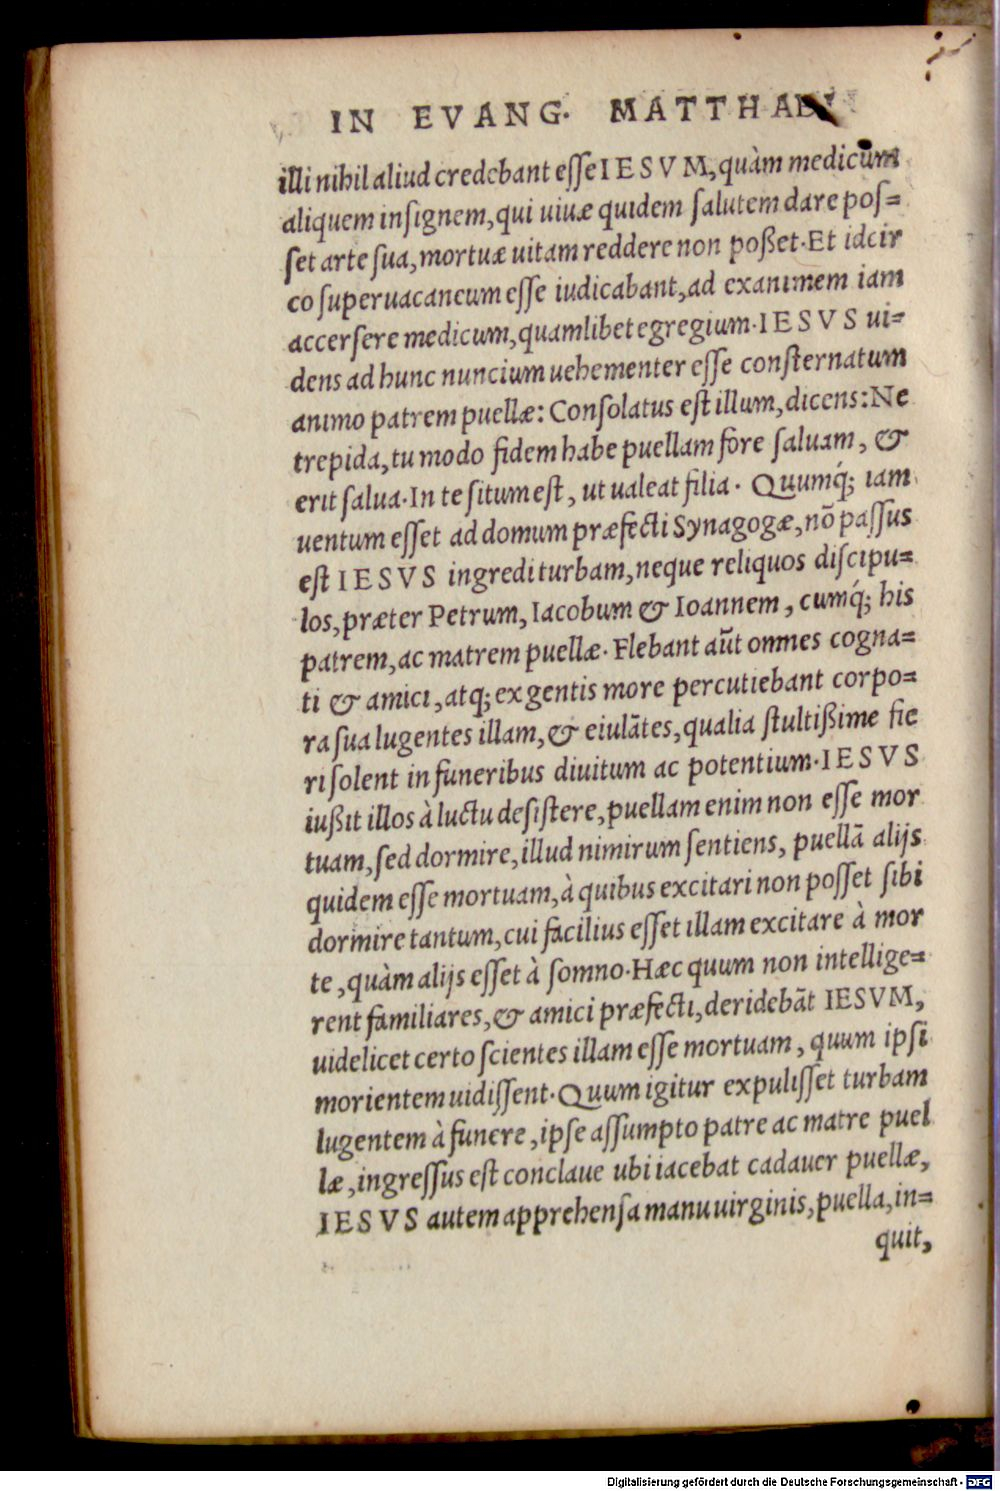 IN EVANG. MATTHAEI
illi nihil aliud credebant esse IESVM, quàm medicum
aliquem insignem, qui uiuæ quidem salutem dare pos=
set arte sua, mortuæ uitam reddere non poßet. Et idcir
co superuacaneum esse iudicabant, ad exanimem iam
accersere medicum, quamlibet egregium. IESVS ui=
dens ad hunc nuncium uehementer esse consternatum
animo patrem puellæ: Consolatus est illum, dicens: Ne
trepida, tu modo fidem habe puellam fore saluam, &
erit salua. In te situm est, ut ualeat filia. Quumq́; iam
uentum esset ad domum præfecti Synagogæ, nõ passus
est IESVS ingredi turbam, neque reliquos discipu=
los, præter Petrum, Iacobum & Ioannem, cumq́; his
patrem, ac matrem puellæ. Flebant aũt omnes cogna=
ti & amici, atq; ex gentis more percutiebant corpo=
ra sua lugentes illam, & eiulãtes, qualia stultißime fie
ri solent in funeribus diuitum ac potentium. IESVS
iußit illos à luctu desistere, puellam enim non esse mor
tuam, sed dormire, illud nimirum sentiens, puellã alijs
quidem esse mortuam, à quibus excitari non posset sibi
dormire tantum, cui facilius esset illam excitare à mor
te, quàm alijs esset à somno. Hæc quum non intellige=
rent familiares, & amici præfecti, deridebãt IESVM,
uidelicet certo scientes illam esse mortuam, quum ipsi
morientem uidissent. Quum igitur expulisset turbam
lugentem à funere, ipse assumpto patre ac matre puel
læ, ingressus est conclaue ubi iacebat cadauer puellæ,
IESVS autem apprehensa manu uirginis, puella, in=
quit,
Digitalisierung gefördert durch die Deutsche Forschungsgemeinschaft - DFG